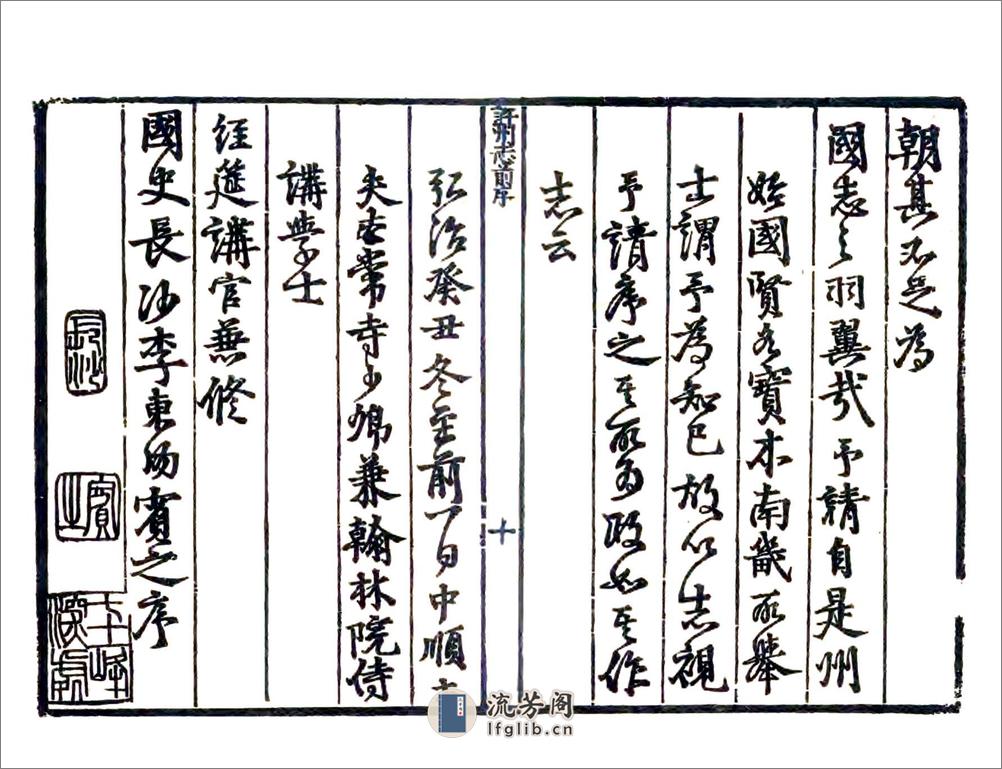 朝其不足為
國志之羽翼哉予請自是州
始國賢名寶本南畿所舉
士謂予為知已故以志視
予請序之其所為政如其作
志云
許州志前序
十
弘治癸丑冬至前一日中順大
夫太常寺少卿兼翰林院侍
講學士
經筵講官兼修
國史長沙李東陽賓之序
長沙
賓之
流芳阁
lfglib.cn